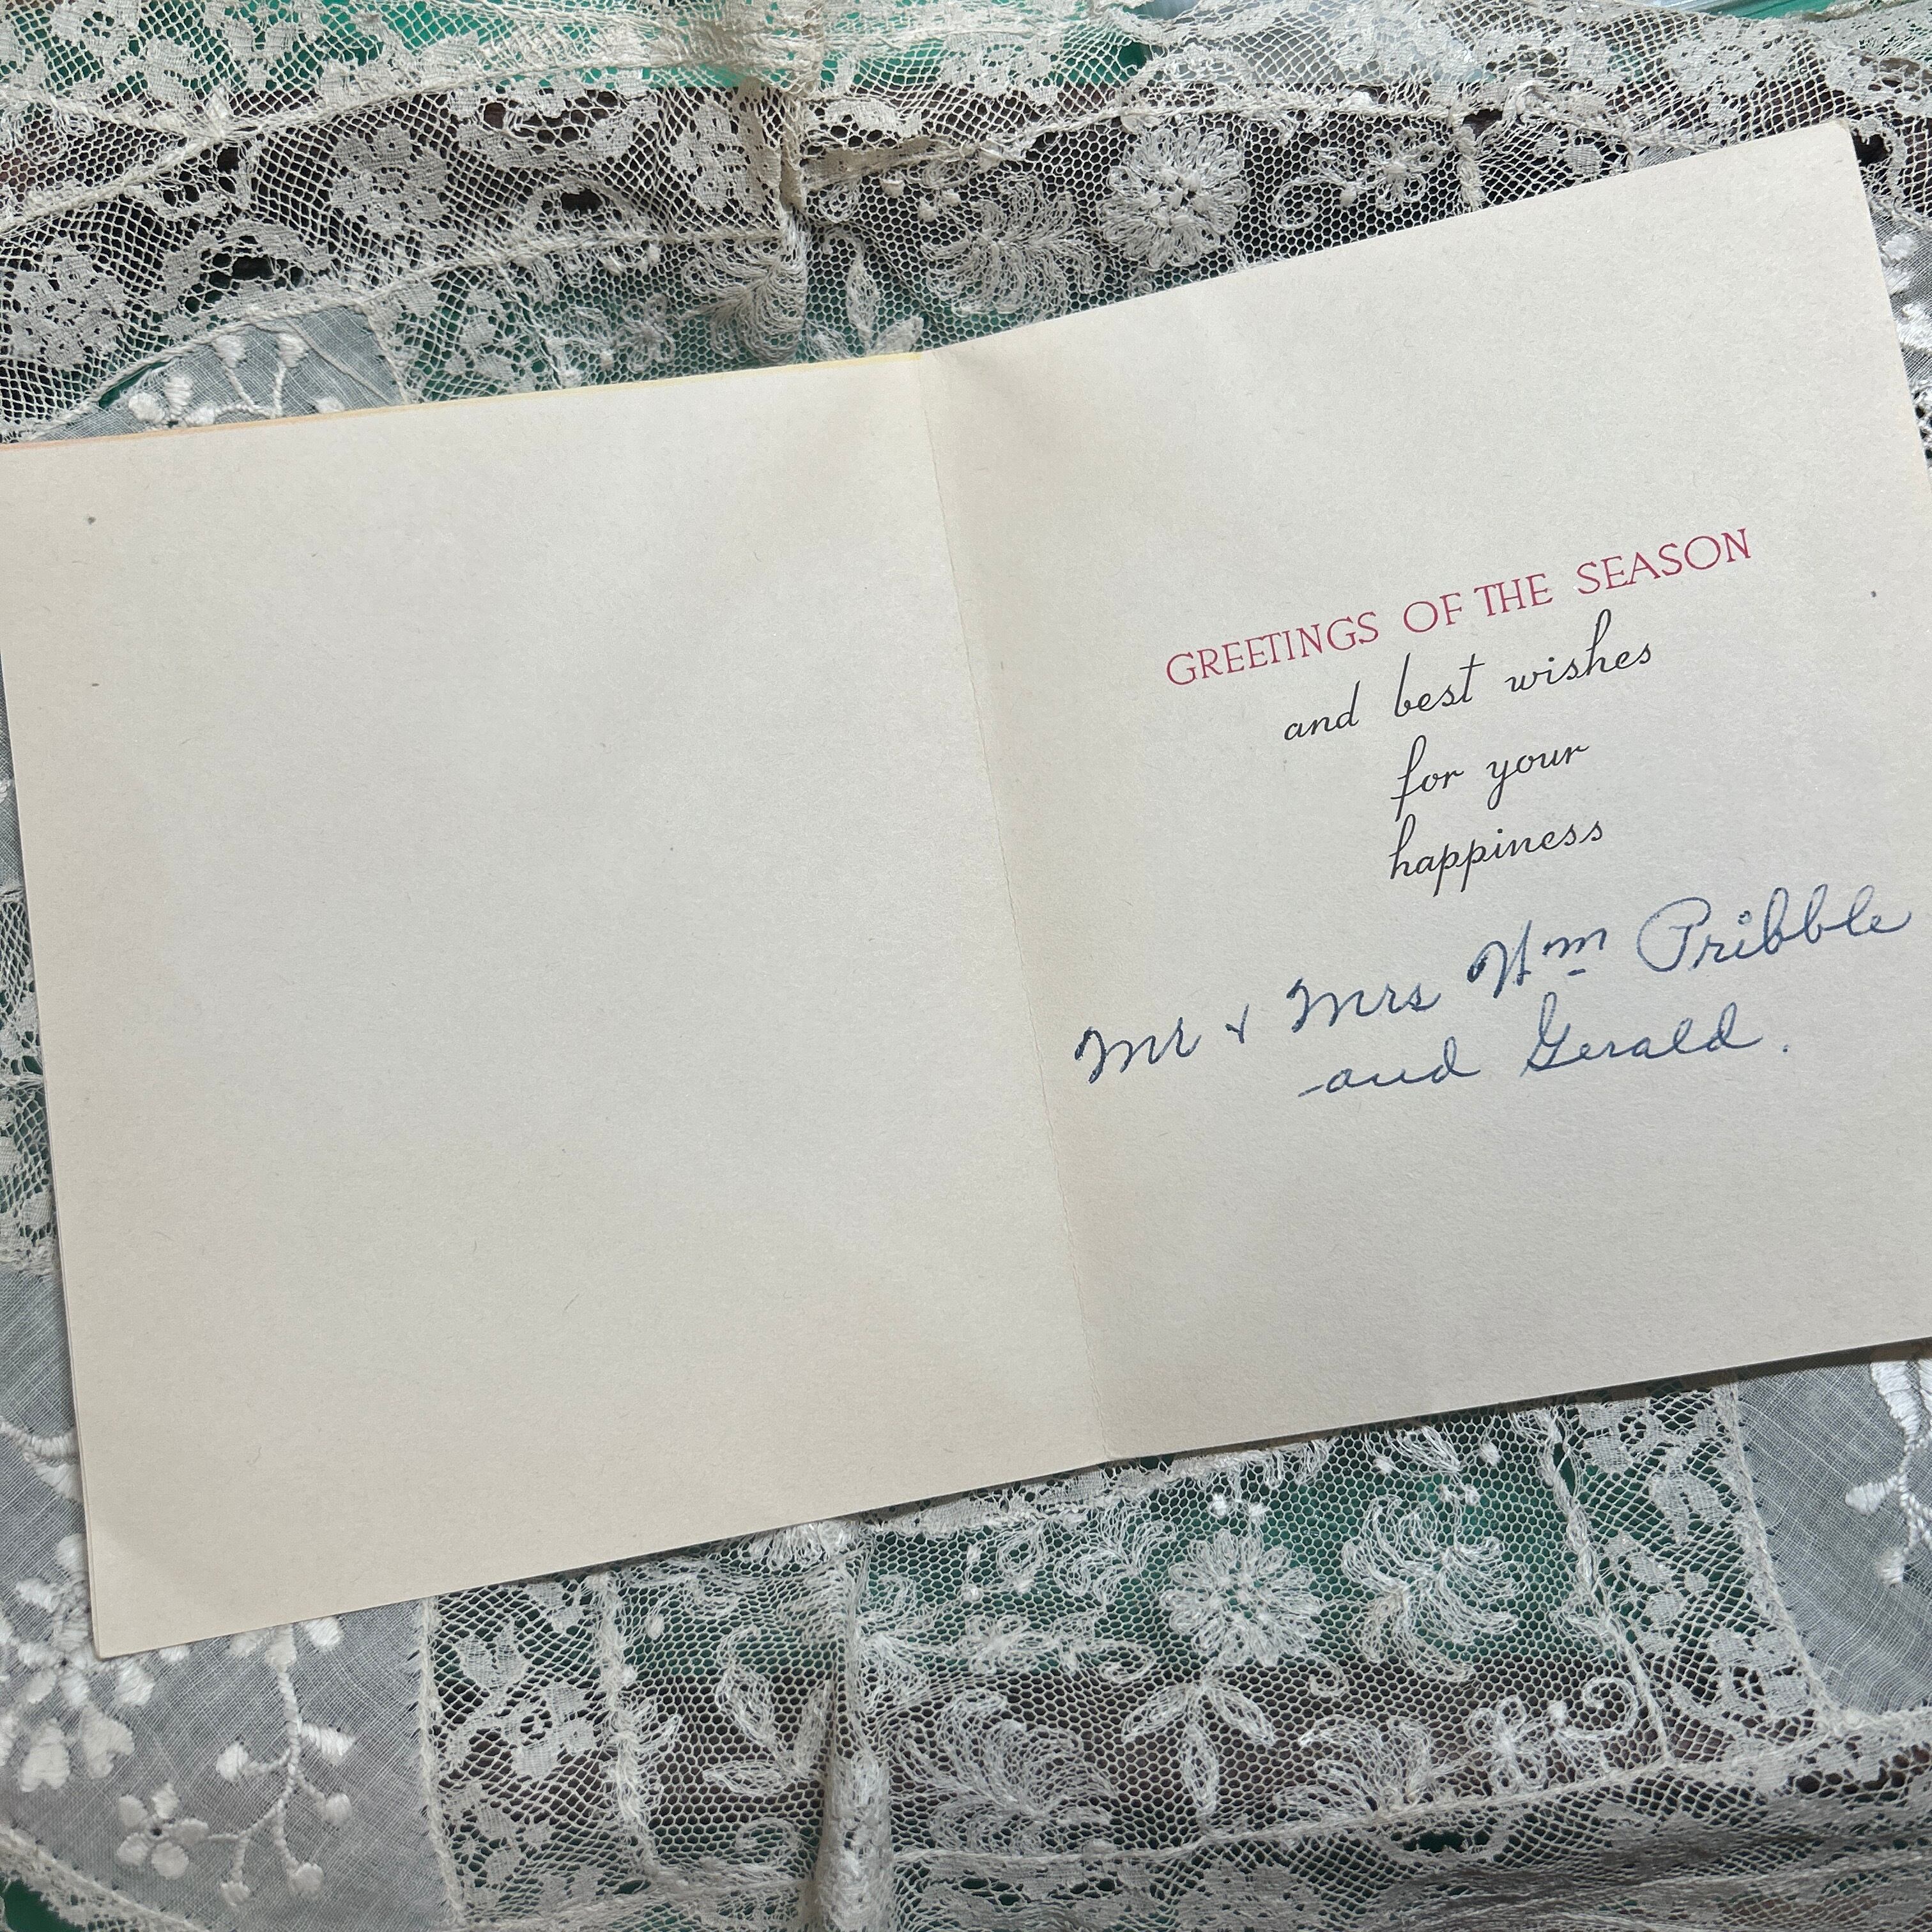 GREETINGS OF THE SEASON
and best wishes
for your
happiness
Mr & Mrs Wm Pribble
and Gerald.